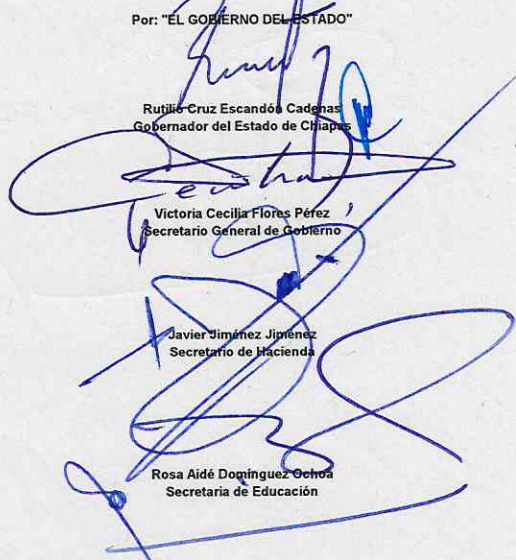 Por: "EL GOBIERNO DEL ESTADO"
Rutilio Cruz Escandón Cadenas
Gobernador del Estado de Chiapas
Victoria Cecilia Flores Pérez
Secretario General de Gobierno
Javier Jiménez Jiménez
Secretario de Hacienda
Rosa Aidé Domínguez Ochoa
Secretaria de Educación